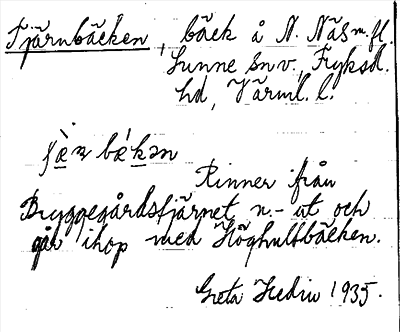 Tjärnbäcken, bäck å N. Näs m. fl.
Sunne sn v., Fryksd.
hd, Värml. l.
Rinner från
Bryggegårdstjärnet n.-ut och
går ihop med Höghultbäcken.
Greta Hedin 1935.